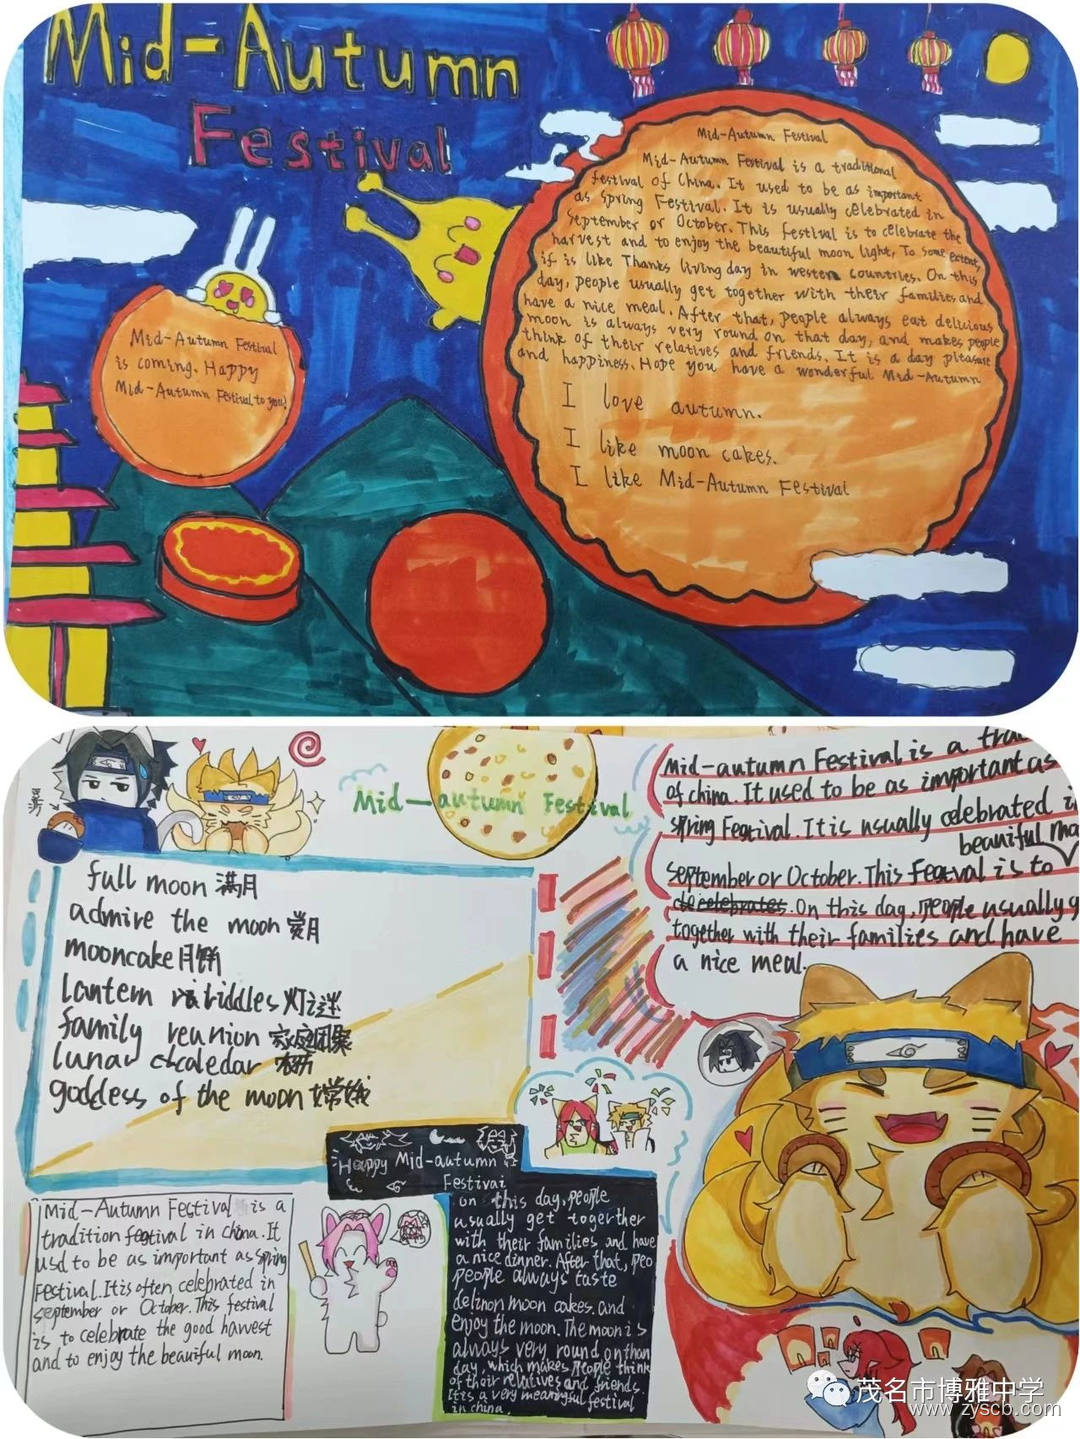 Mid-Autumn
Festival
Mid-Autumn Festival
Mid-Autumn Festival is a traditional
festival of China. It used to be as important
as Spring Festival. It is usually celebrated in
September or October. This festival is to celebrate the
harvest and to enjoy the beautiful moon light. To some extent,
if is like Thanks living day in western countries. On this
day, people usually get together with their families and
have a nice meal. After that, people always eat delicious
moon is always very round on that day, and makes people
think of their relatives and friends. It is a day pleasure
and happiness. Hope you have a wonderful Mid-Autumn
I love autumn.
I like moon cakes.
I like Mid-Autumn Festival
Mid-Autumn Festival
is coming. Happy
Mid-Autumn Festival to you!
Mid-autumn Festival
full moon 满月
admire the moon 赏月
mooncake 月饼
lantern riddles 灯谜
family reunion 家庭团聚
lunar caledar 农历
goddess of the moon 嫦娥
Mid-autumn Festival is a
of china. It used to be as important as
spring Festival. It is usually celebrated
beauiful
September or October. This Festval is to
celebrates. On this day, people usually
together with their families and have
a nice meal.
Happy Mid-autumn
Festival
Mid-Autumn Festival is a
tradition festival in China. It
usd to be as important as spring
Festival. It is often celebrated in
September or October. This festival
is to celebrate the good harvest
and to enjoy the beauiful moon.
on this day, people
usually get together
with their families and have
a nice dinner. After that, peo
people always taste
moon cakes. and
enjoy the moon. The moon is
always very round on than
day, which makes people think
of their relatives and friends.
It is a very meaningful festival
in china
茂名市博雅中学
www.zyscb.com